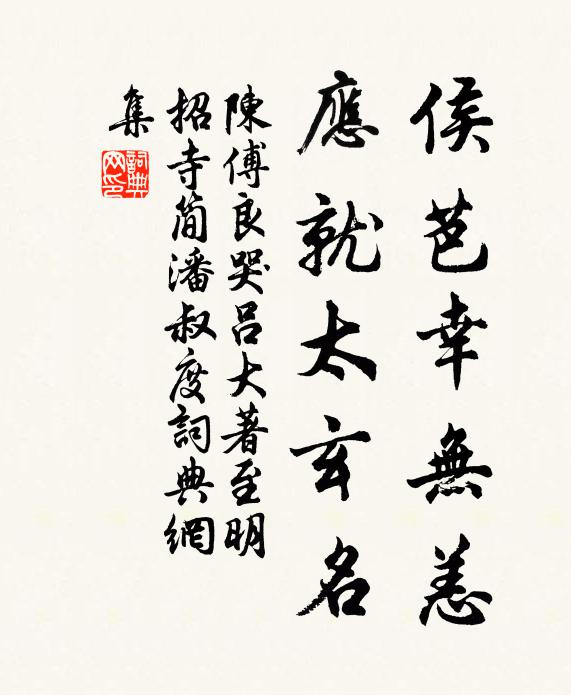 侯芭幸無恙
應就太玄名
陳傅良哭呂大著至明
招寺簡潘叔度詞典網
集
詞典网印